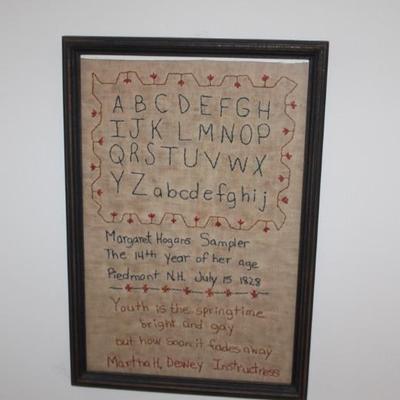 A B C D E F G H
I J K L M N O P
Q R S T U V W X
Y Z a b c d e f g h i j
Margaret Hogans Sampler
The 14th year of her age
Piedmont N.H. July 15 1828
Youth is the springtime
bright and gay
but how soon it fades away
Martha H. Dewey Instructress